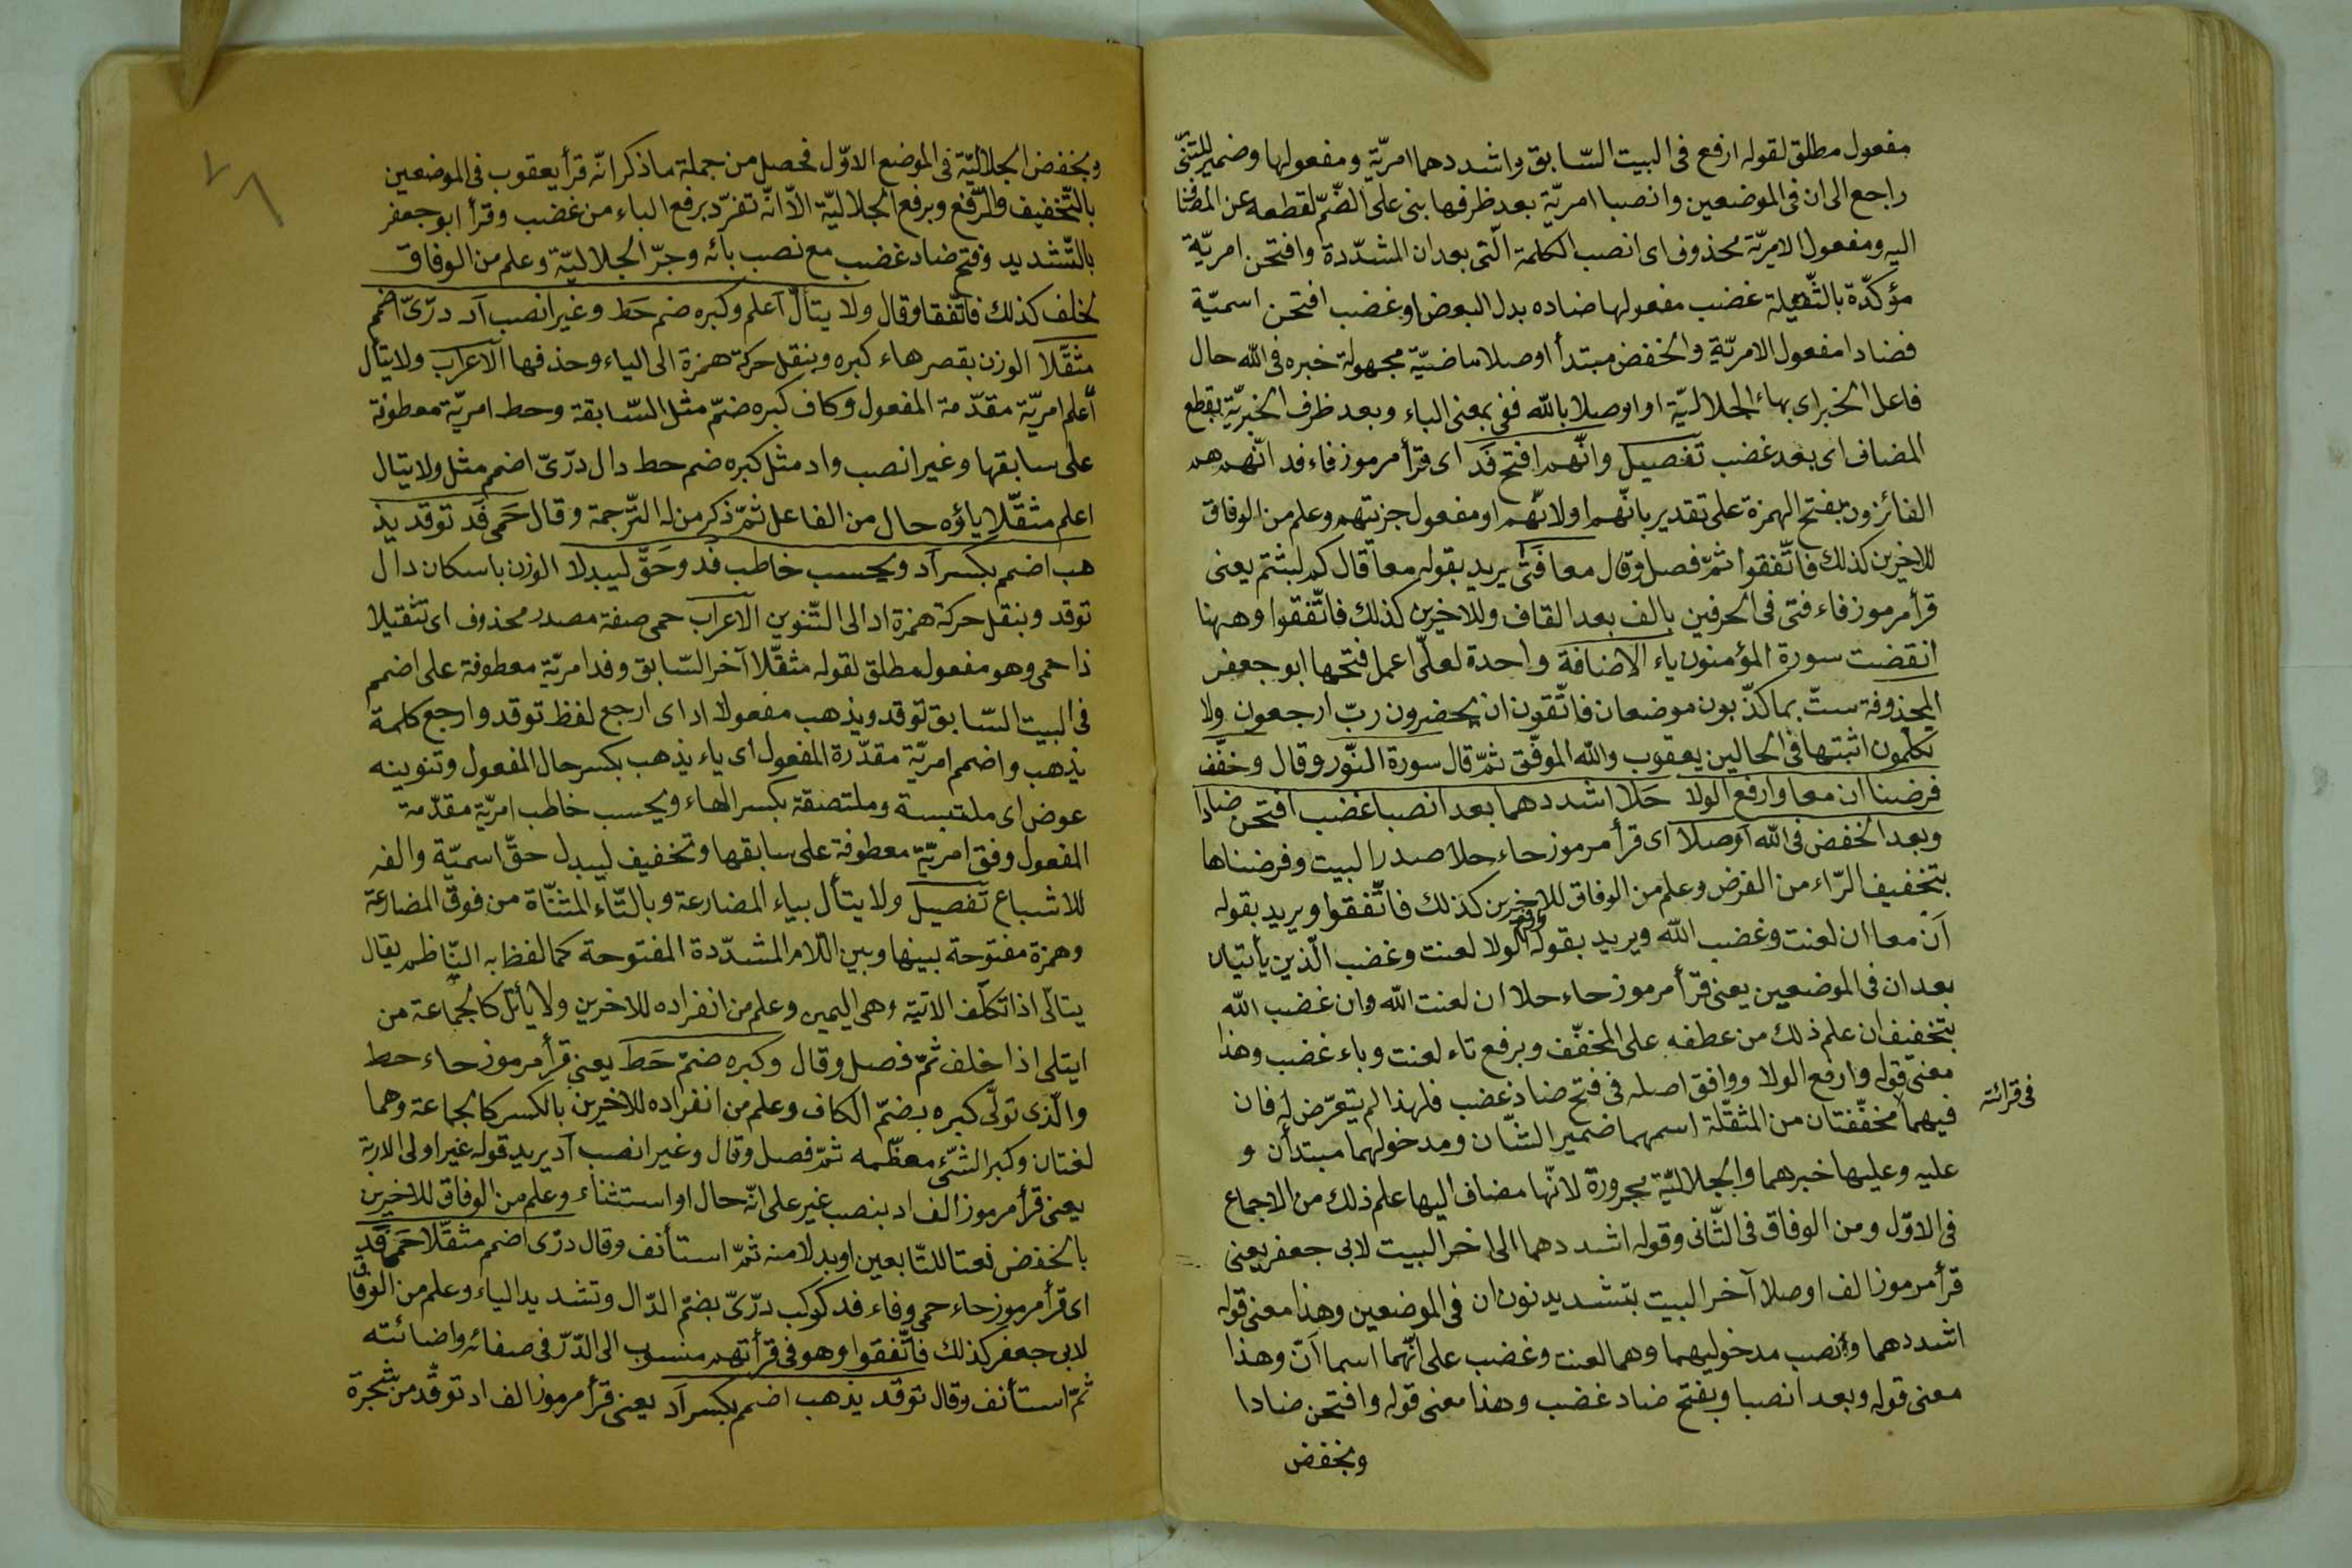 مفعول مطلق لقوله ارفع فى البيت السّابق واشددهما امريّة ومفعولها وضمير المثنّى
راجع الى ان فى الموضعين وانصبا امريّة بعد ظرفها بنى على الضّمّ لقطعه عن المضا
اليه ومفعول الامريّة محذوف اى انصب الكلمة الّتى بعد ان المشدّدة وافتحن امريّة
مؤكّدة بالثّقيلة غضب مفعولها ضاده بدل البعض او غضب افتحن اسميّة
فضادا مفعول الامريّة والخفض مبتدأ اوصلا ماضيّة مجهولة خبره فى الله حال
فاعل الخبر اى بهاء الجلاليّة او اوصلا بالله ففى بمعنى الباء وبعد ظرف الخبريّة بقطع
المضاف اى بعد غضب تفصيل وانّهم افتح فَد اى قرأ مرموز فاء فد انّهم هم
الفائزون بفتح الهمزة على تقدير بانّهم او لانّهم او مفعول جزيتهم وعلم من الوفاق
للاخرين كذلك فاتّفقوا ثمّ فصل وقال معا فَتًى يريد بقوله معا قال كم لبثتم يعنى
قرأ مرموز فاء فتى فى الحرفين بالف بعد القاف وللاخرين كذلك فاتّفقوا وههنا
انقضت سورة المؤمنون ياء الاضافة واحدة لعلّى اعمل فتحها ابو جعفر
المحذوفة ستّ بما كذّبون موضعان فاتّقون ان يحضرون ربّ ارجعون ولا
تكلّمون اثبتها فى الحالين يعقوب والله الموفّق ثمّ قال سورة النّور وقال وخفّف
فرضنا ان معا وارفع الولا حَلا اشددهما بعد انصبا غضب افتحن ضادا
وبعد الخفض فى الله اُوصلا اى قرأ مرموز حاء حلا صدر البيت وفرضناها
بتخفيف الرّاء من الفرض وعلم من الوفاق للاخرين كذلك فاتّفقوا ويريد بقوله
اَن معا ان لعنت وغضب الله ويريد بقوله وارفع الولا لعنت وغضب الّذين يأتيان
بعد ان فى الموضعين يعنى قرأ مرموز حاء حلا ان لعنت الله وان غضب الله
بتخفيف ان علم ذلك من عطفه على المخفّف وبرفع تاء لعنت وباء غضب وهذا
معنى قوله وارفع الولا ووافق اصله فى فتح ضاد غضب فلهذا لم يتعرّض له فان
فى قرائته
فيهما مخفّفتان من المثقّلة اسمهما ضمير الشّان ومدخولهما مبتدأن و
عليه وعليها خبرهما والجلاليّة مجرورة لانّها مضاف اليها علم ذلك من الاجماع
فى الاوّل ومن الوفاق فى الثّانى وقوله اشددهما الى اخر البيت لابى جعفر يعنى
قرأ مرموز الف اوصلا آخر البيت بتشديد نون ان فى الموضعين وهذا معنى قوله
اشددهما وبنصب مدخوليهما وهما لعنت وغضب على انّهما اسما اَنّ وهذا
معنى قوله وبعد انصبا وبفتح ضاد غضب وهذا معنى قوله وافتحن ضادا
وبخفض
وبخفض الجلاليّة فى الموضع الاوّل فحصل من جملة ما ذكر انّه قرأ يعقوب فى الموضعين
بالتّخفيف والرّفع وبرفع الجلاليّة الاّ انّه تفرّد برفع الباء من غضب وقرأ ابو جعفر
بالتّشديد وفتح ضاد غضب مع نصب بائه وجرّ الجلاليّة وعلم من الوفاق
لخلف كذلك فاتّفقا وقال ولا يتألّ اعلم وكبره ضم حَط وغير انصب اُد درّىّ اضمم
مثقّلا الوزن بقصر هاء كبره وبنقل حركة همزة الى الياء وحذفها الاعراب ولا يتأل
اعلم امريّة مقدّمة المفعول وكاف كبره ضمّ مثل السّابقة وحط امريّة معطوفة
على سابقها وغير انصب واد مثل كبره ضم حط دال درّىّ اضمم مثل ولا يتال
اعلم مثقّلا ياؤه حال من الفاعل ثمّ ذكر من له الترّجمة وقال حَمى فَد توقد يذ
هب اضمم بكسر اُد ويحسب خاطب فُد وحَقّ ليبدلا الوزن باسكان دال
توقد وبنقل حركة همزة اد الى التّنوين الاعراب حمى صفة مصدر محذوف اى تثقيلا
ذا حمى وهو مفعول مطلق لقوله مثقّلا آخر السّابق وفد امريّة معطوفة على اضمم
فى البيت السّابق توقد ويذهب مفعولا اد اى ارجع لفظ توقد وارجع كلمة
يذهب واضمم امريّة مقدّرة المفعول اى ياء يذهب بكسر حال المفعول وتنوينه
عوض اى ملتبسة وملتصقة بكسر الهاء ويحسب خاطب امريّة مقدّمة
المفعول وفق امريّة معطوفة على سابقها وتخفيف ليبدل حقّ اسميّة والفه
للاشباع تفصيل ولا يتأل بياء المضارعة وبالتّاء المثنّاة من فوق المضارعة
وهمزة مفتوحة بينها وبين اللّام المشدّدة المفتوحة كما لفظ به النّاظم يقال
يتالّى اذا تكلّف الاتية وهى اليمين وعلم من انفراده للاخرين ولا يأتل كالجماعة من
ايتلى اذا خلف ثمّ فصل وقال وكبره ضمّ حَط يعنى قرأ مرموز حاء حط
والّذى تولّى كبره بضمّ الكاف وعلم من انفراده للاخرين بالكسر كالجماعة وهما
لغتان وكبر الشّئ معظّمه ثمّ فصل وقال وغير انصب اُد يريد قوله غير اولى الاربة
يعنى قرأ مرموز الف اد بنصب غير على انّه حال او استثناء وعلم من الوفاق للاخرين
بالخفض نعتا للتّابعين او بدلا منه ثمّ استأنف وقال درّى اضمم مثقّلا حَمى فَد
اى قرأ مرموز حاء حمى وفاء فد كوكب درّىّ بضمّ الدّال وتشديد الياء وعلم من الوفاق
لابى جعفر كذلك فاتّفقوا وهو فى قرأتهم منسوب الى الدّرّ فى صفائه واضائته
ثمّ استأنف وقال توقد يذهب اضمم بكسر اُد يعنى قرأ مرموز الف اد توقّد من شجرة